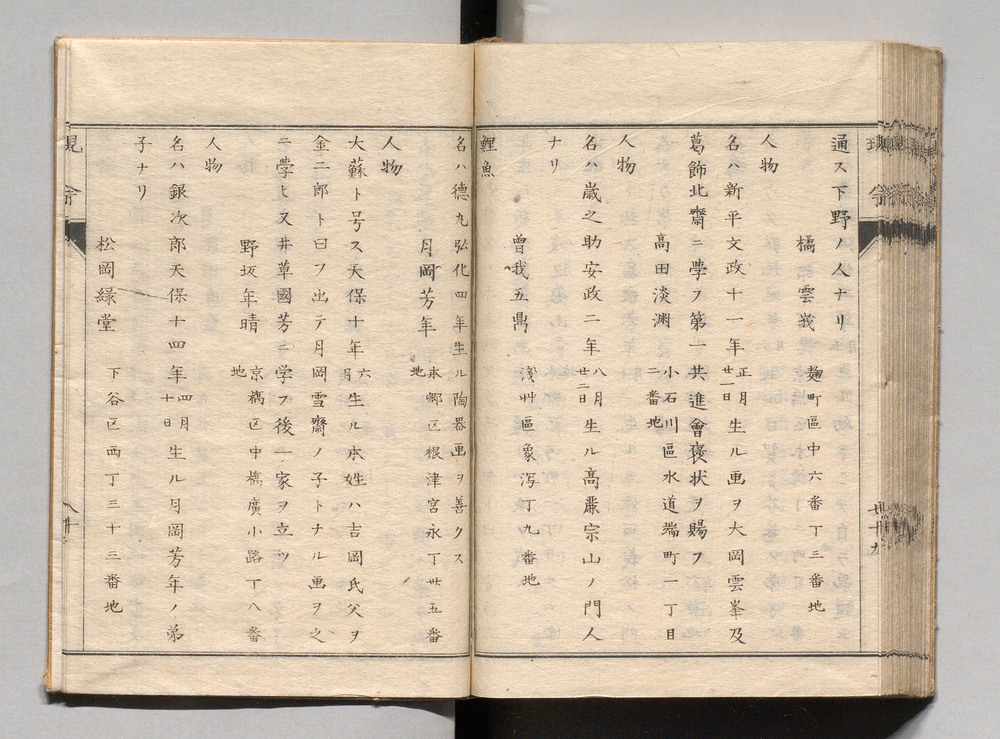 通ス下野ノ人ナリ
橘雲峩 麹町區中六番丁三番地
人物
名ハ新平文政十一年正月廿一日生ル画ヲ大岡雲峯及
葛飾北齋ニ學フ第一共進會褒状ヲ賜フ
高田淡渊 小石川區水道端町一丁目二番地
人物
名ハ嵗之助安政二年八月廿二日生ル高嚴宗山ノ門人
ナリ
曽我五鼎 浅艸區象泻丁九番地
鯉魚
名ハ德九弘化四年生ル陶器画ヲ善クス
月岡芳年 本郷区根津宮永丁丗五番地
人物
大蘇ト号ス天保十年六月生ル本姓ハ吉岡氏父ヲ
金二郎ト曰フ出テ月岡雪齋ノ子トナル画ヲ之
ニ學ヒ又井草國芳ニ学フ後一家ヲ立ツ
野坂年晴 京槗区中槗廣小路丁八番地
人物
名ハ銀次郎天保十四年四月十日生ル月岡芳年ノ弟
子ナリ
松岡緑堂 下谷区西丁三十三番地